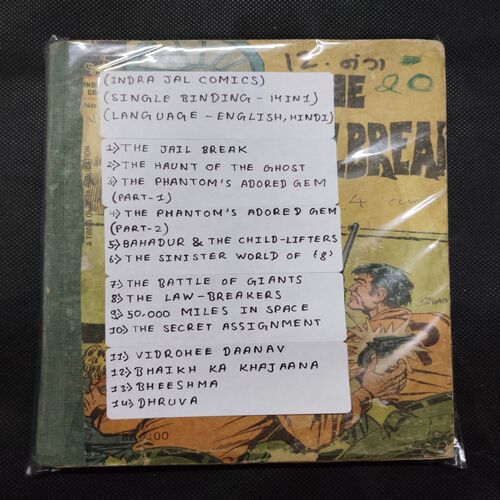 12. नंगा
20
THE
BREAK
(INDRA JAL COMICS)
(SINGLE BINDING - 14 IN 1)
(LANGUAGE - ENGLISH, HINDI)
1》 THE JAIL BREAK
2》 THE HAUNT OF THE GHOST
3》 THE PHANTOM'S ADORED GEM
(PART-1)
4》 THE PHANTOM'S ADORED GEM
(PART-2)
5》 BAHADUR & THE CHILD-LIFTERS
6》 THE SINISTER WORLD OF '8'
7》 THE BATTLE OF GIANTS
8》 THE LAW-BREAKERS
9》 50,000 MILES IN SPACE
10》 THE SECRET ASSIGNMENT
11》 VIDROHEE DAANAV
12》 BHAIKH KA KHAJAANA
13》 BHEESHMA
14》 DHRUVA
4
A TIMES OF